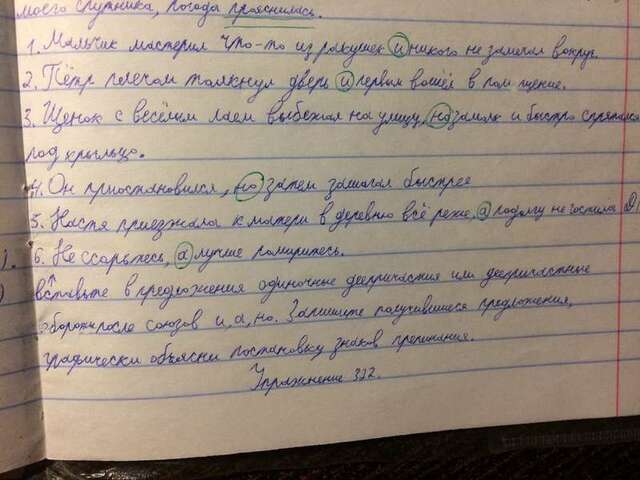 моего спутника, погода прояснилась.
1. Мальчик мастерил что-то из ракушек и никого не замечал вокруг.
2. Пётр плечом толкнул дверь и первым вошёл в помещение.
3. Щенок с весёлым лаем выбежал на улицу, но замолк и быстро спрятался
под крыльцо.
4. Он приостановился, но затем зашагал быстрее
5. Настя приезжала к матери в деревню всё реже, а подолгу не гостила
6. Не ссорьтесь, а лучше помиритесь.
вставьте в предложения одиночные деепричастия или деепричастные
обороты после союзов и, а, но. Запишите получившиеся предложения,
графически объясни постановку знаков препинания.
Упражнение 392.